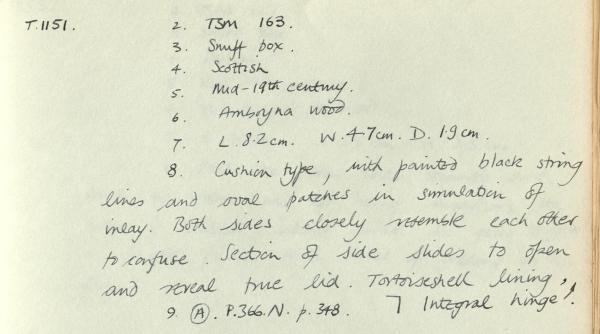 T.1151. 2. TSM 163.
3. Snuff box.
4. Scottish
5. Mid-19th century.
6. Amboyna wood.
7. L. 8.2cm. W. 4.7cm. D. 1.9cm.
8. Cushion type, with painted black string
lines and oval patches in simulation of
inlay. Both sides closely resemble each other
to confuse. Section of side slides to open
and reveal true lid. Tortoiseshell lining,
9. (A). P.366.N. p.348. ┐ Integral hinge'.